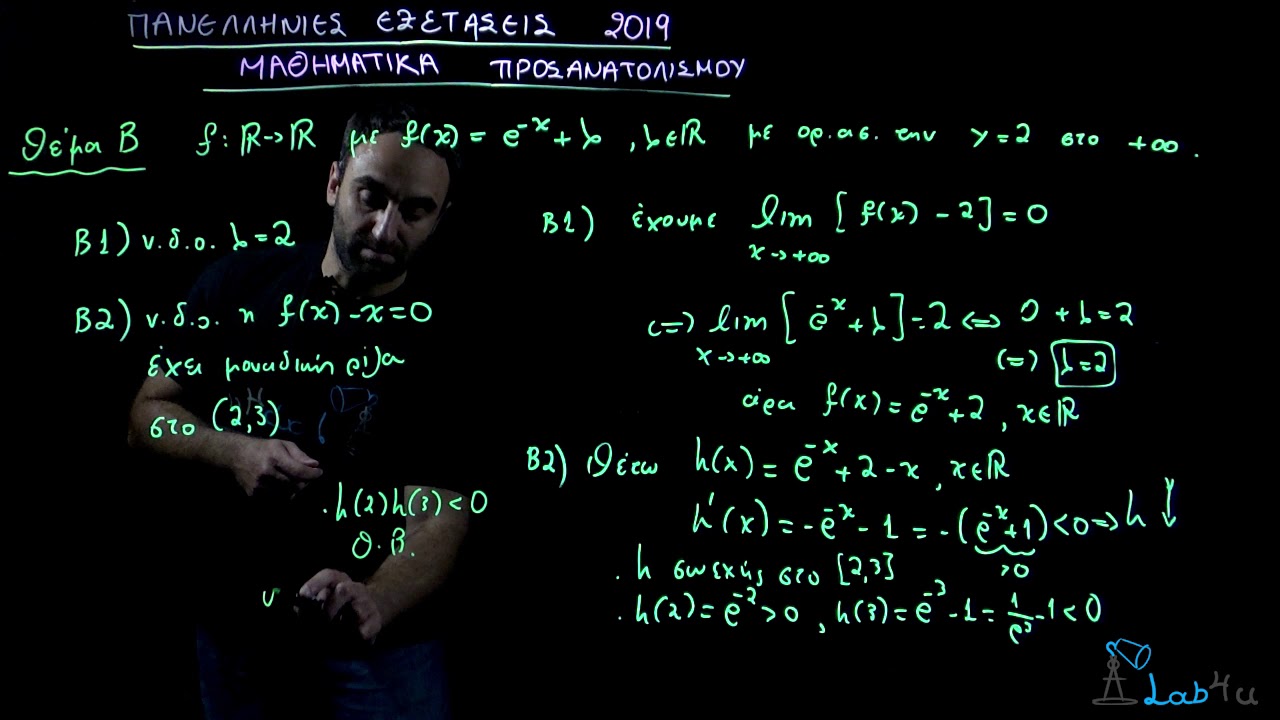 ΠΑΝΕΛΛΗΝΙΕΣ ΕΞΕΤΑΣΕΙΣ 2019
ΜΑΘΗΜΑΤΙΚΑ ΠΡΟΣΑΝΑΤΟΛΙΣΜΟΥ
Θέμα Β f: ℝ→ℝ με f(x) = e^{-x} + λ , λ∈ℝ με ορ. ασ. την y = 2 στο +∞.
Β1) ν.δ.ο. λ = 2
Β2) ν.δ.ο. η f(x) - x = 0
έχει μοναδική ρίζα
στο (2,3)
. h(2)h(3) < 0
Θ. Β.
υ
Β1) έχουμε lim_{x→+∞} [f(x) - 2] = 0
(=) lim_{x→+∞} [e^{-x} + λ] = 2 ⇔ 0 + λ = 2
(=) λ = 2
άρα f(x) = e^{-x} + 2 , x∈ℝ
Β2) Θέτω h(x) = e^{-x} + 2 - x , x∈ℝ
h'(x) = -e^{-x} - 1 = -(e^{-x} + 1) < 0 ⇒ h ↓
>0
. h συνεχής στο [2,3]
. h(2) = e^{-2} > 0 , h(3) = e^{-3} - 1 = 1/e^3 - 1 < 0
Lab4u